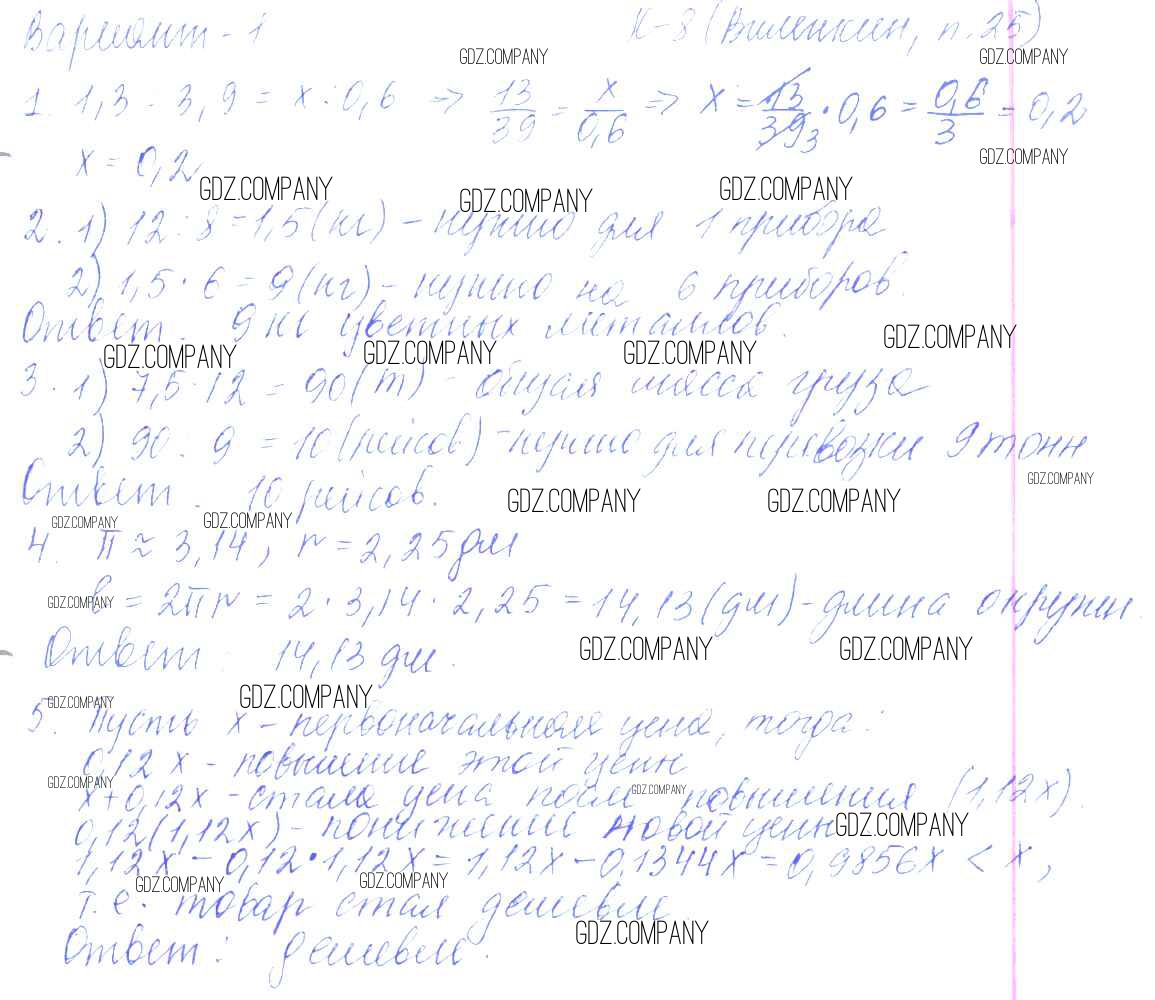 Вариант - 1 К-8 (Виленкин, п.25)
GDZ.COMPANY GDZ.COMPANY
1. 1,3 : 3,9 = x : 0,6 => 13/39 = x/0,6 => x = 13/39 3 · 0,6 = 0,6/3 = 0,2
GDZ.COMPANY
x = 0,2
GDZ.COMPANY GDZ.COMPANY GDZ.COMPANY
2. 1) 12 : 8 = 1,5 (кг) - нужно для 1 прибора
2) 1,5 · 6 = 9 (кг) - нужно на 6 приборов.
Ответ: 9 кг цветных металлов.
GDZ.COMPANY GDZ.COMPANY GDZ.COMPANY GDZ.COMPANY
3. 1) 7,5 · 12 = 90 (т) - общая масса груза
2) 90 : 9 = 10 (рейсов) - нужно для перевозки 9 тонн
GDZ.COMPANY
Ответ: 10 рейсов.
GDZ.COMPANY GDZ.COMPANY
GDZ.COMPANY GDZ.COMPANY
4. π ≈ 3,14, r = 2,25 дм
GDZ.COMPANY
ℓ = 2πr = 2 · 3,14 · 2,25 = 14,13 (дм) - длина окружн.
Ответ: 14,13 дм.
GDZ.COMPANY GDZ.COMPANY
GDZ.COMPANY GDZ.COMPANY
5. Пусть x - первоначальная цена, тогда:
0,12 x - повышение этой цены
GDZ.COMPANY GDZ.COMPANY
x + 0,12x - стала цена после повышения (1,12x).
0,12(1,12x) - понижение новой цены
GDZ.COMPANY
1,12x - 0,12 · 1,12x = 1,12x - 0,1344x = 0,9856x < x,
GDZ.COMPANY GDZ.COMPANY
т.е. товар стал дешевле.
GDZ.COMPANY
Ответ: дешевле.